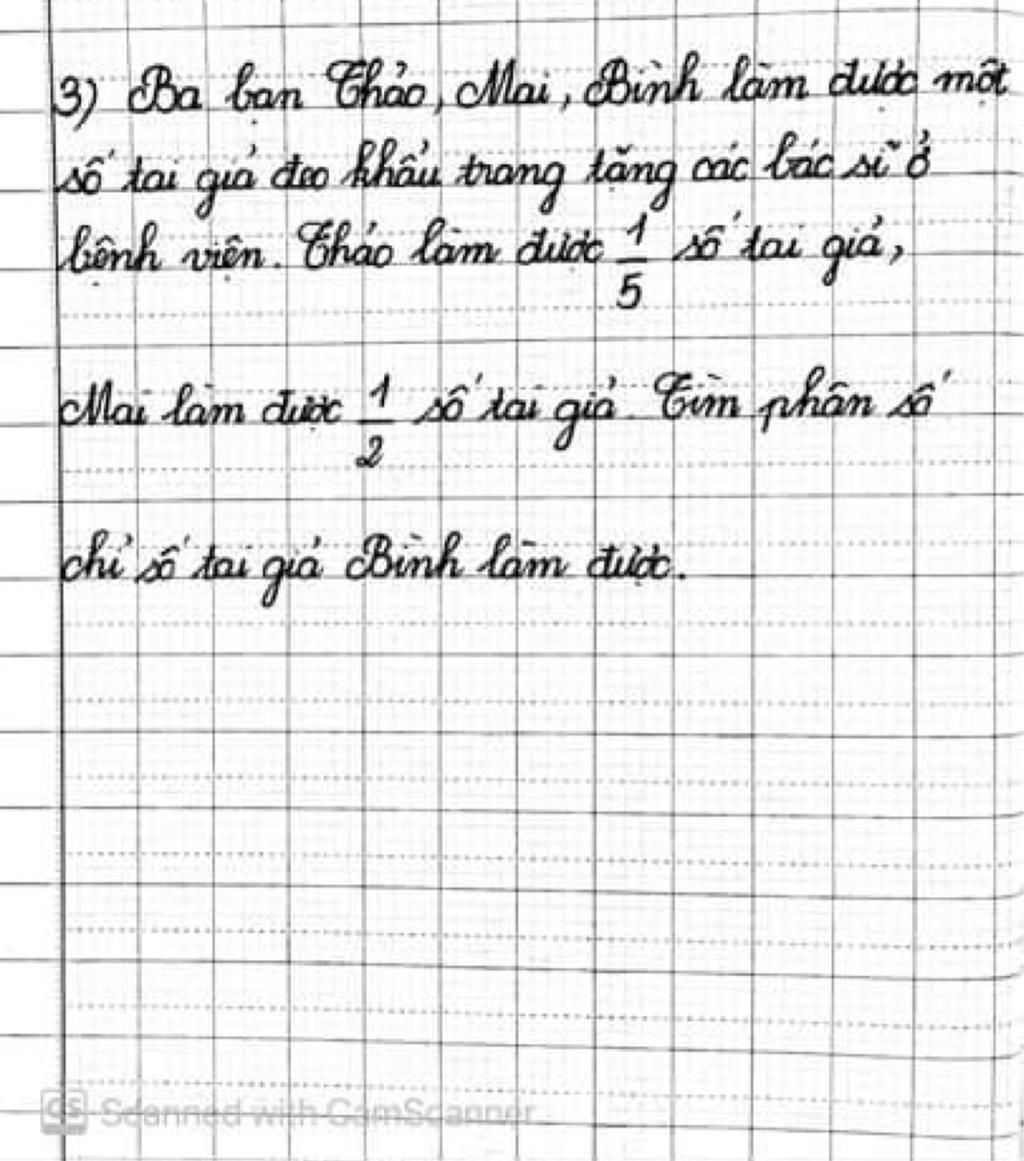 3) Ba bạn Thảo, Mai, Bình làm được một
số tai giả đeo khẩu trang tặng các bác sĩ ở
bệnh viện. Thảo làm được 1/5 số tai giả,
Mai làm được 1/2 số tai giả. Tìm phân số
chỉ số tai giả Bình làm được.
CS Scanned with CamScanner